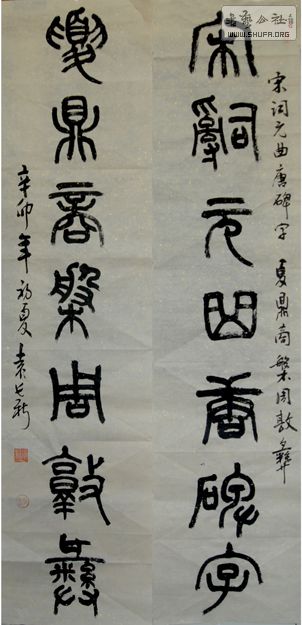 书法公社
WWW.SHUFA.ORG
宋词元曲唐碑字 夏鼎商槃周敦彝
宋詞元曲唐碑字
夏鼎商槃周敦彝
辛卯年初夏袁